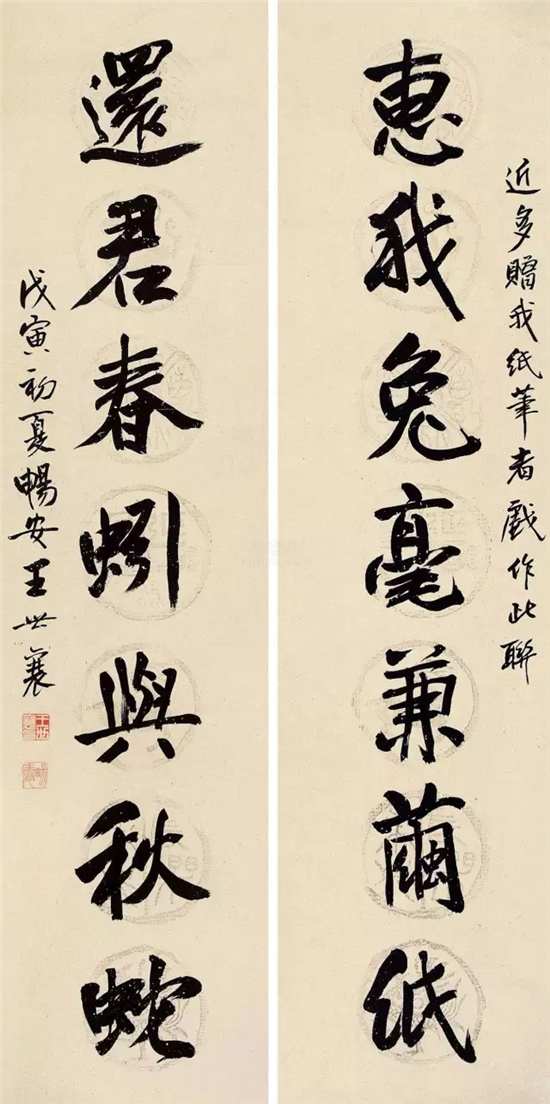 近多贈我紙筆者戲作此聯
惠我兔毫兼繭紙
還君春蚓與秋蛇
戊寅初夏暢安王世襄